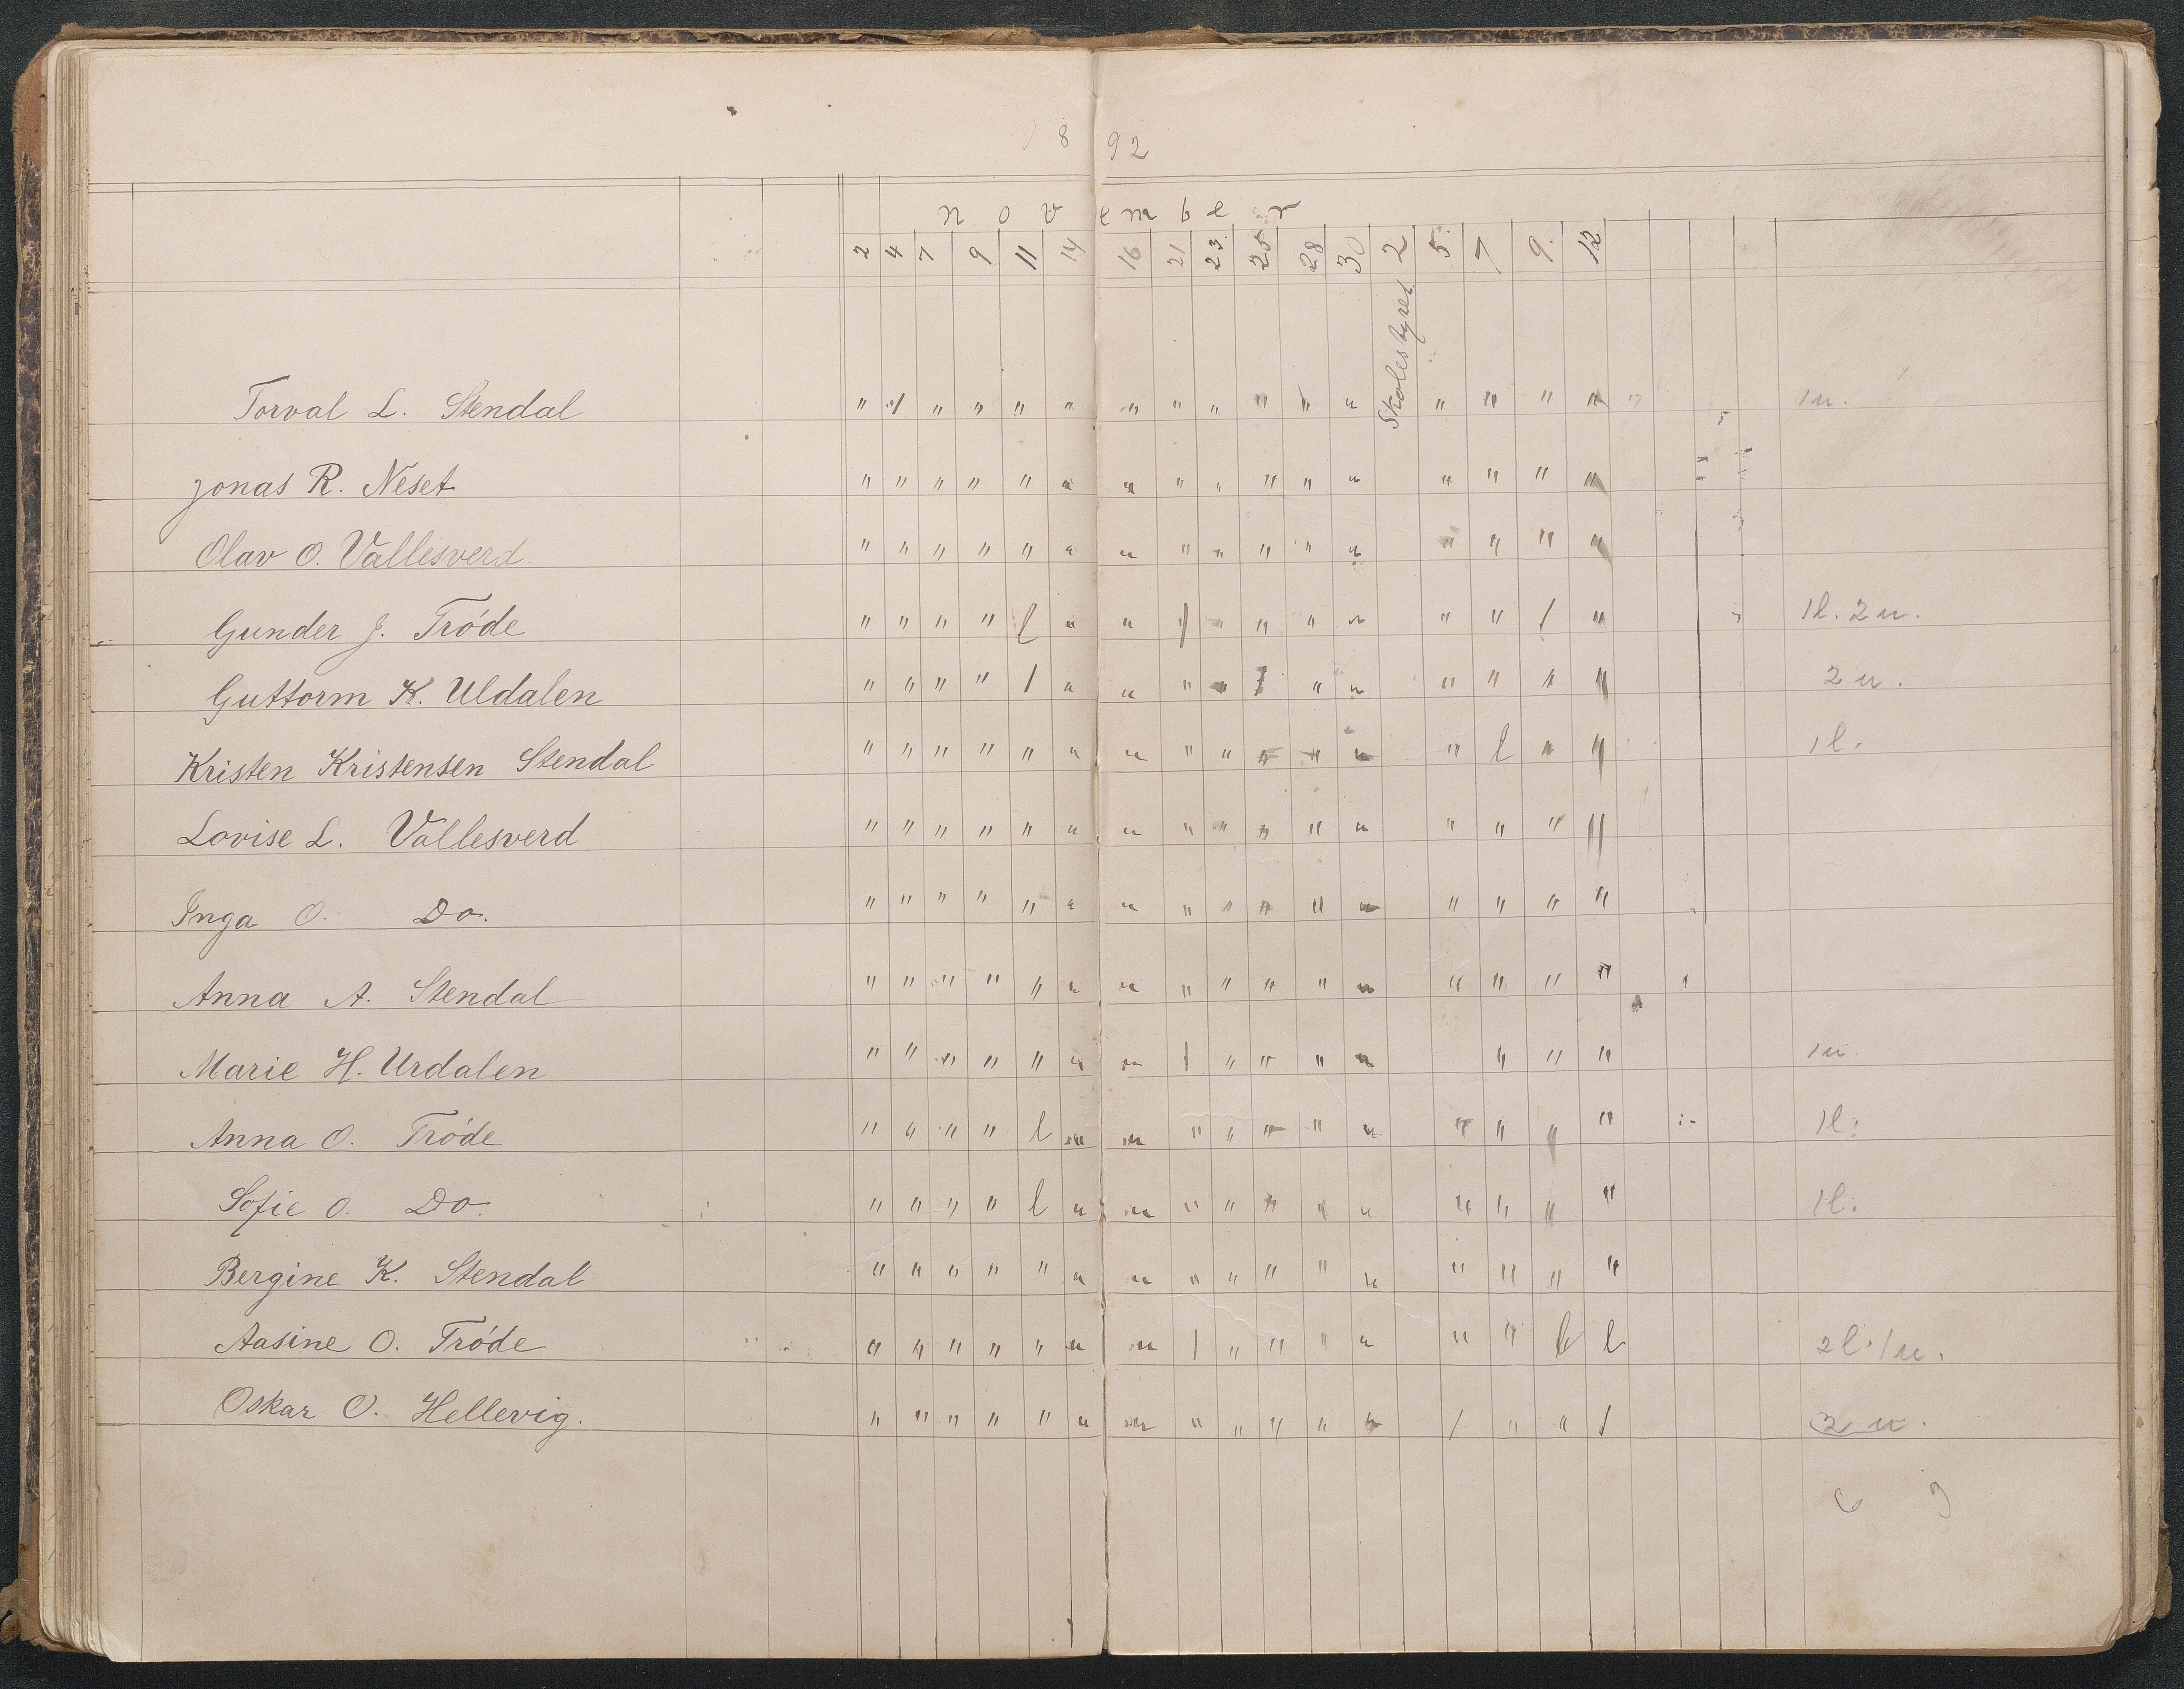 1892
November
2 4 7 9 11 14 16 21 23. 25 28 30 2 5. 7 9. 12
Skolestyret
Torval L. Stendal " / " " " " " " " " " " " " " " 1u.
Jonas R. Neset " " " " " " " " " " " " " " " "
Olav O. Vallesverd. " " " " " " " " " " " " " " " "
Gunder J. Tróde " " " " l " " / " " " " " " / " 1l. 2u.
Guttorm K. Uldalen " " " " / " " " " / " " " " " " 2u.
Kristen Kristensen Stendal " " " " " " " " " " " " " l " " 1l.
Lovise L. Vallesverd " " " " " " " " " " " " " " " "
Inga O. Do. " " " " " " " " " " " " " " " "
Anna A. Stendal " " " " " " " " " " " " " " " "
Marie H. Urdalen " " " " " " " / " " " " " " " 1u.
Anna O. Tróde " " " " l " " " " " " " " " " " 1l.
Sofie O. Do. " " " " l " " " " " " " " " " " 1l.
Bergine K. Stendal " " " " " " " " " " " " " " " "
Aasine O. Tróde " " " " " " " / " " " " " " l l 2l. 1u.
Oskar O. Hellevig. " " " " " " " " " " " " / " " / 2u.
6 9